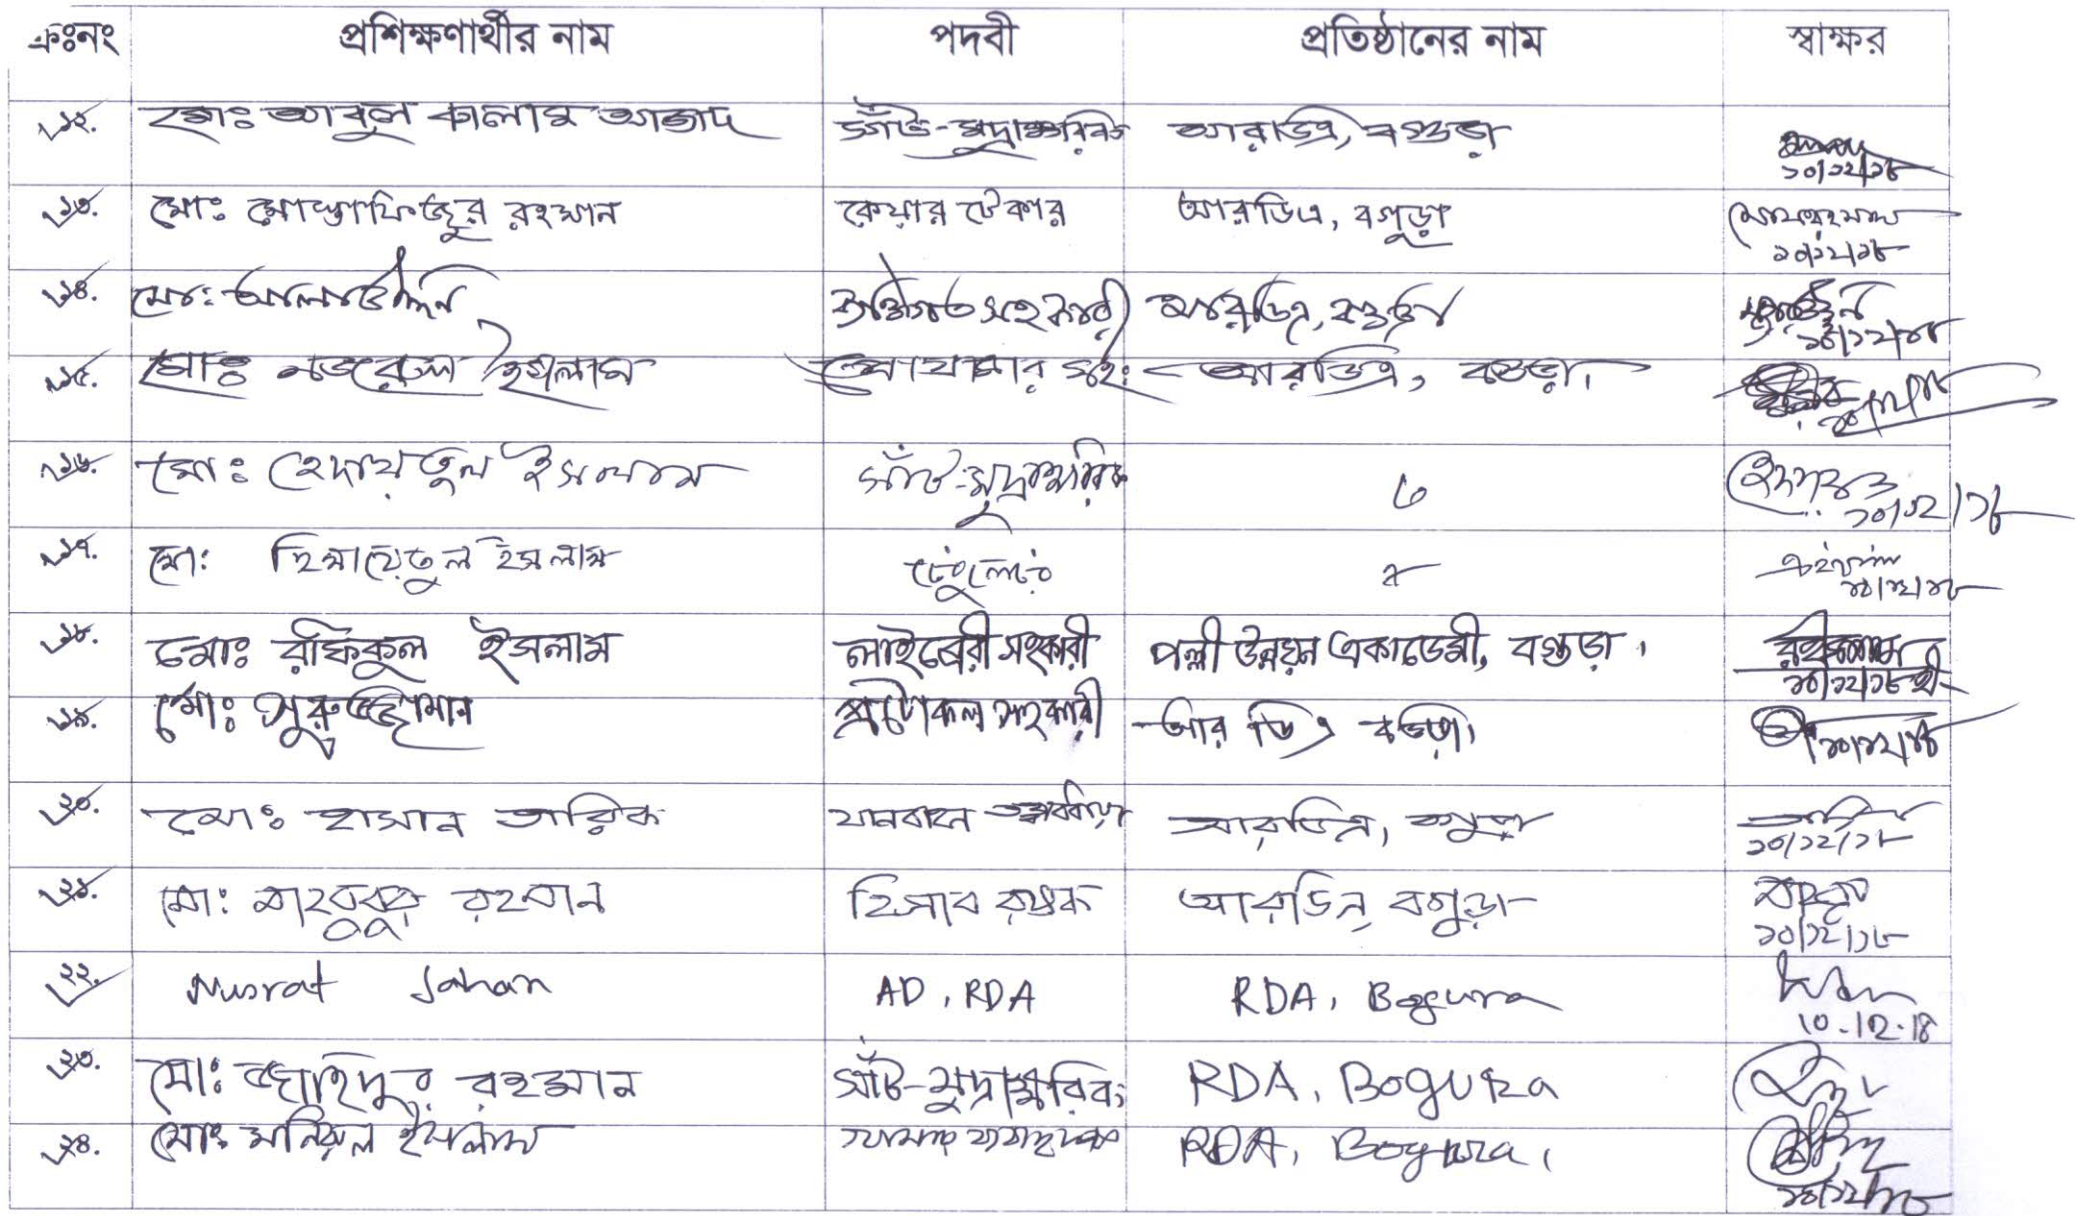 ক্রঃনং প্রশিক্ষণার্থীর নাম পদবী প্রতিষ্ঠানের নাম স্বাক্ষর
১২. মোঃ আবুল কালাম আজাদ সাঁট-মুদ্রাক্ষরিক আরডিএ, বগুড়া ১০/১২/১৮
১৩. মোঃ মোস্তাফিজুর রহমান কেয়ার টেকার আরডিএ, বগুড়া ১০/১২/১৮
১৪. মোঃ আলাউদ্দিন ব্যক্তিগত সহকারী আরডিএ, বগুড়া ১০/১২/১৮
১৫. মোঃ নজরুল ইসলাম সহঃ আরডিএ, বগুড়া। ১০/১২/১৮
১৬. মোঃ হেদায়তুল ইসলাম সাঁট-মুদ্রাক্ষরিক ঐ ১০/১২/১৮
১৭. মো: হিমায়েতুল ইসলাম ১০/১২/১৮
১৮. মোঃ রফিকুল ইসলাম লাইব্রেরী সহকারী পল্লী উন্নয়ন একাডেমী, বগুড়া। ১০/১২/১৮
১৯. মোঃ নুরুজ্জামান প্রটোকল সহকারী আর ডি এ বগুড়া। ১০/১২/১৮
২০. মোঃ হাসান তারিক যানবাহন আরডিএ, বগুড়া ১০/১২/১৮
২১. মো: মাহবুবুর রহমান হিসাব রক্ষক আরডিএ, বগুড়া ১০/১২/১৮
২২. Nusrat Jahan AD, RDA RDA, Bogura 10.12.18
২৩. মোঃ জাহিদুর রহমান সাঁট-মুদ্রাক্ষরিক RDA, Bogura
২৪. মোঃ মনিরুল ইসলাম RDA, Bogura, ১০/১২/১৮